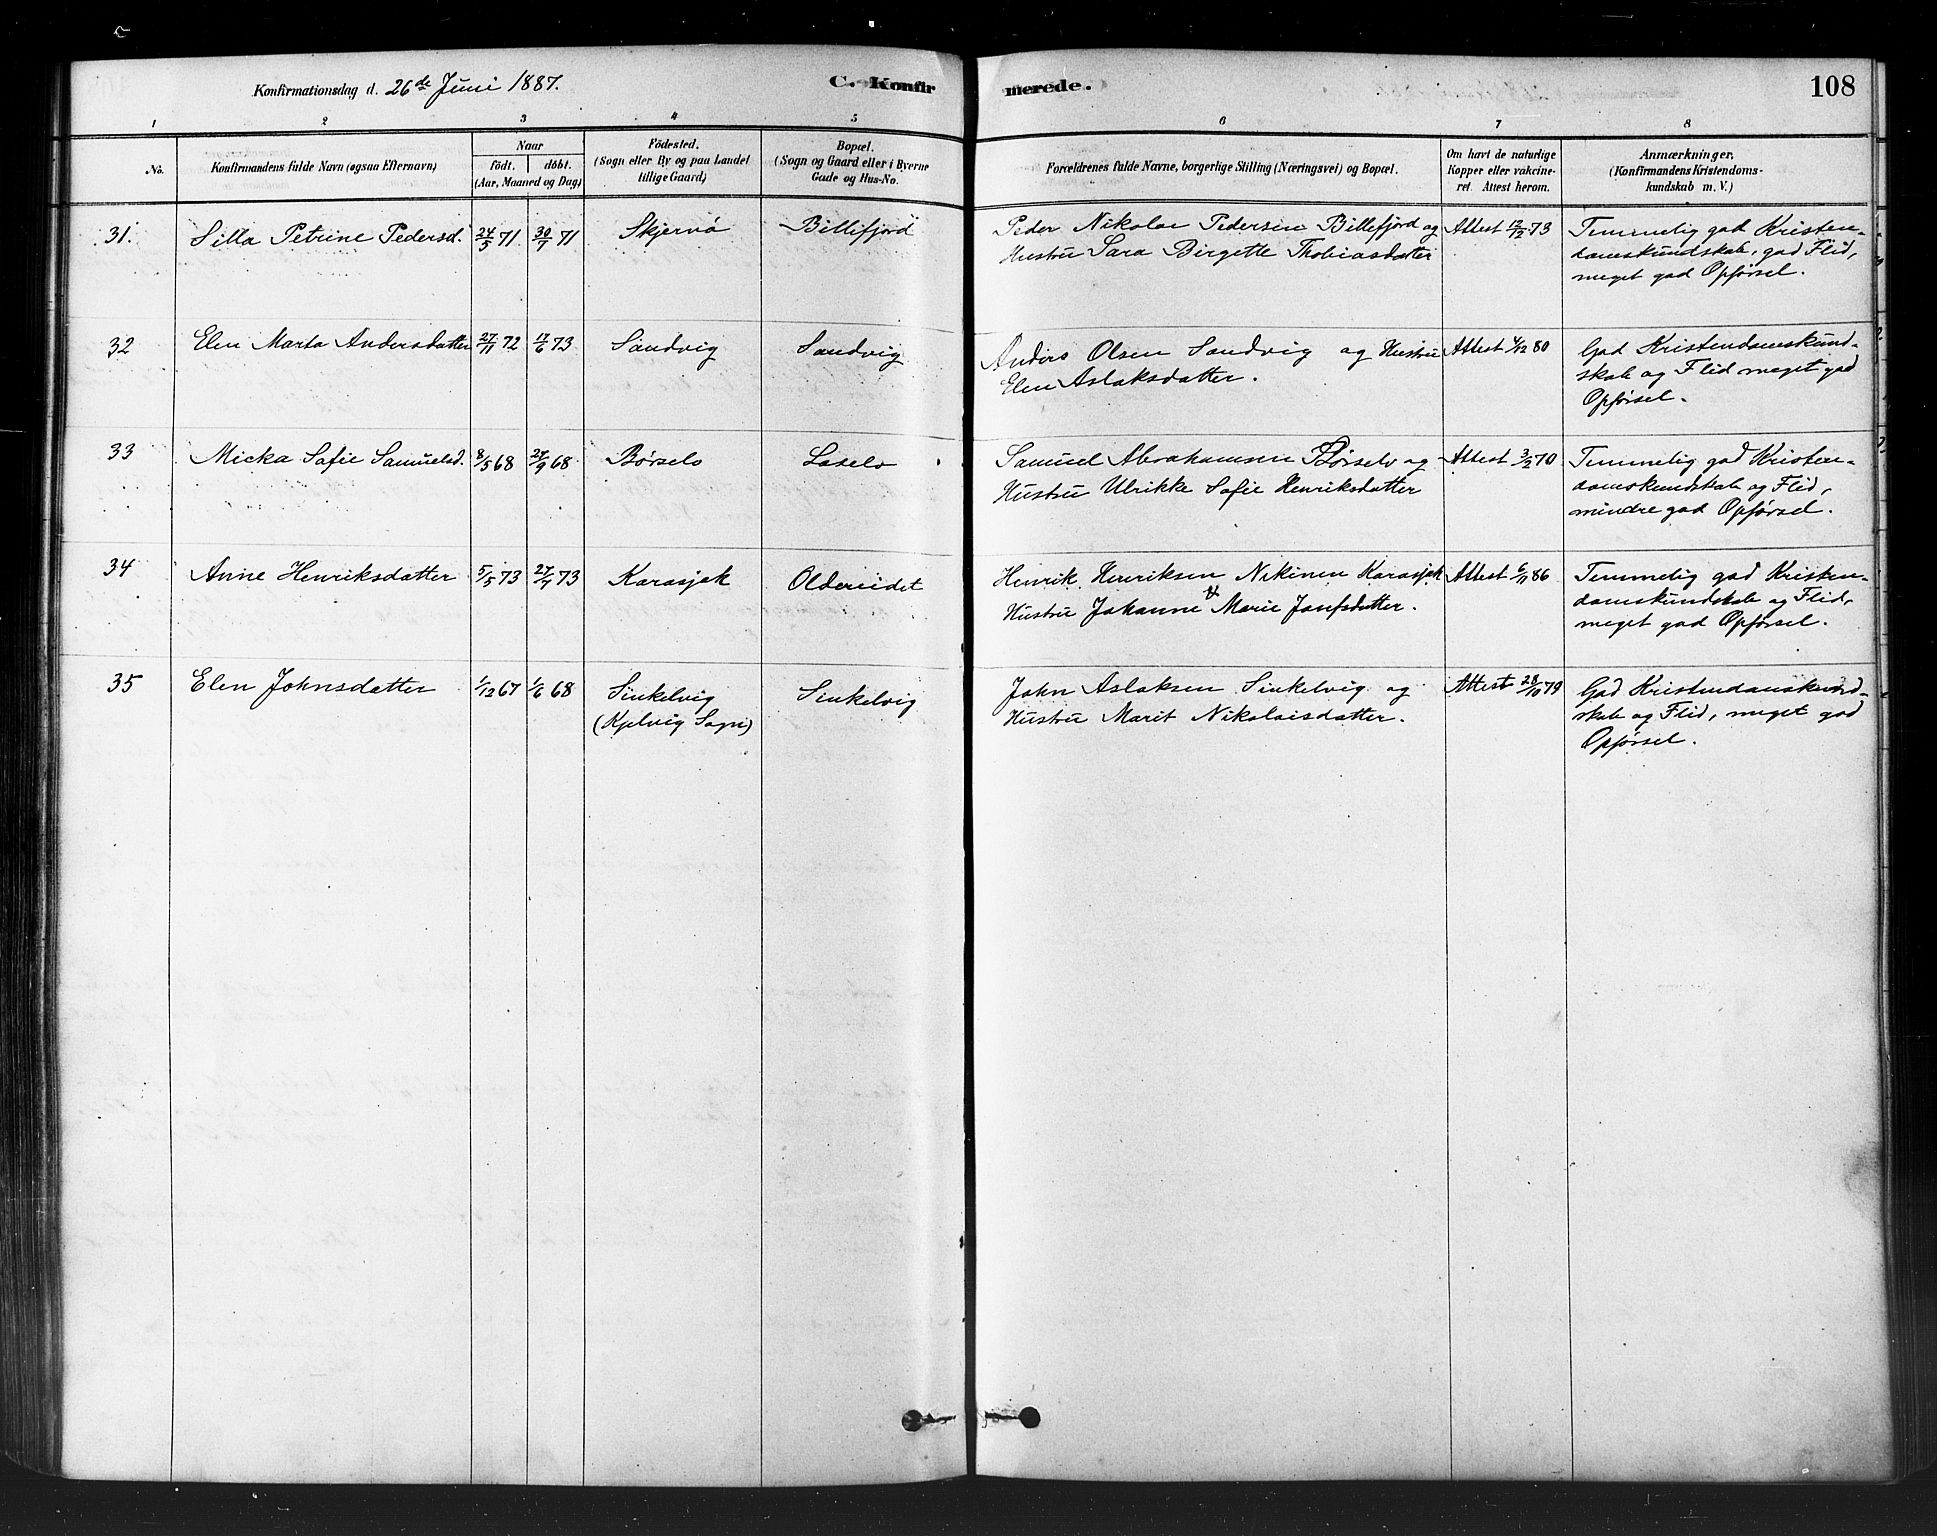 Konfirmationsdag d. 26de Juni 1887.
C. Konfirmerede.
108
1 2 3 4 5 6 7 8
No.
Konfirmandens fulde Navn (ogsaa Efternavn)
Naar
födt. döbt.
(Aar, Maaned og Dag)
Födested.
(Sogn eller By og paa Landet
tillige Gaard)
Bopæl.
(Sogn og Gaard eller i Byerne
Gade og Hus-No.
Forældrenes fulde Navne, borgerlige Stilling (Næringsvei) og Bopæl.
Om havt de naturlige
Kopper eller vakcine-
ret. Attest herom.
Anmærkninger.
(Konfirmandens Kristendoms-
kundskab m. V.)
31. Silla Petrine Pedersd. 24/5 71 30/7 71 Skjervö Billefjord
Peder Nikolai Pedersen Billefjord og
Hustru Sara Birgette Thobiasdatter
Attest 12/12 73
Temmelig god Kristen-
domskundskab, god Flid,
meget god Opførsel.
32 Elen Marta Andersdatter 27/11 72 17/6 73 Sandvig Sandvig
Anders Olsen Sandvig og Hustru
Elen Aslaksdatter.
Attest 4/12 80
God Kristendomskund-
skab og Flid meget god
Opførsel.
33 Micka Safie Samuelsd. 8/5 68 27/9 68 Börselv Laselv
Samuel Abrahamsen Börselv og
Hustru Ulrikke Sofie Henriksdatter
Attest 3/2 70
Temmelig god Kristen-
domskundskab og Flid,
mindre god Opførsel.
34 Anne Henriksdatter 5/5 73 27/7 73 Karasjok Oldereidet
Henrik Henriksen Nikinen Karasjok
Hustru Johanne Marie Josefsdatter.
Attest 6/11 86
Temmelig god Kristen-
domskundskab og Flid,
meget god Opførsel.
35 Elen Johnsdatter 1/12 67 1/6 68 Sinkelvig
(Kjelvig Sogn)
Sinkelvig
John Aslaksen Sinkelvig og
Hustru Marit Nikolaisdatter.
Attest 28/10 79
God Kristendomskund-
skab og Flid, meget god
Opførsel.